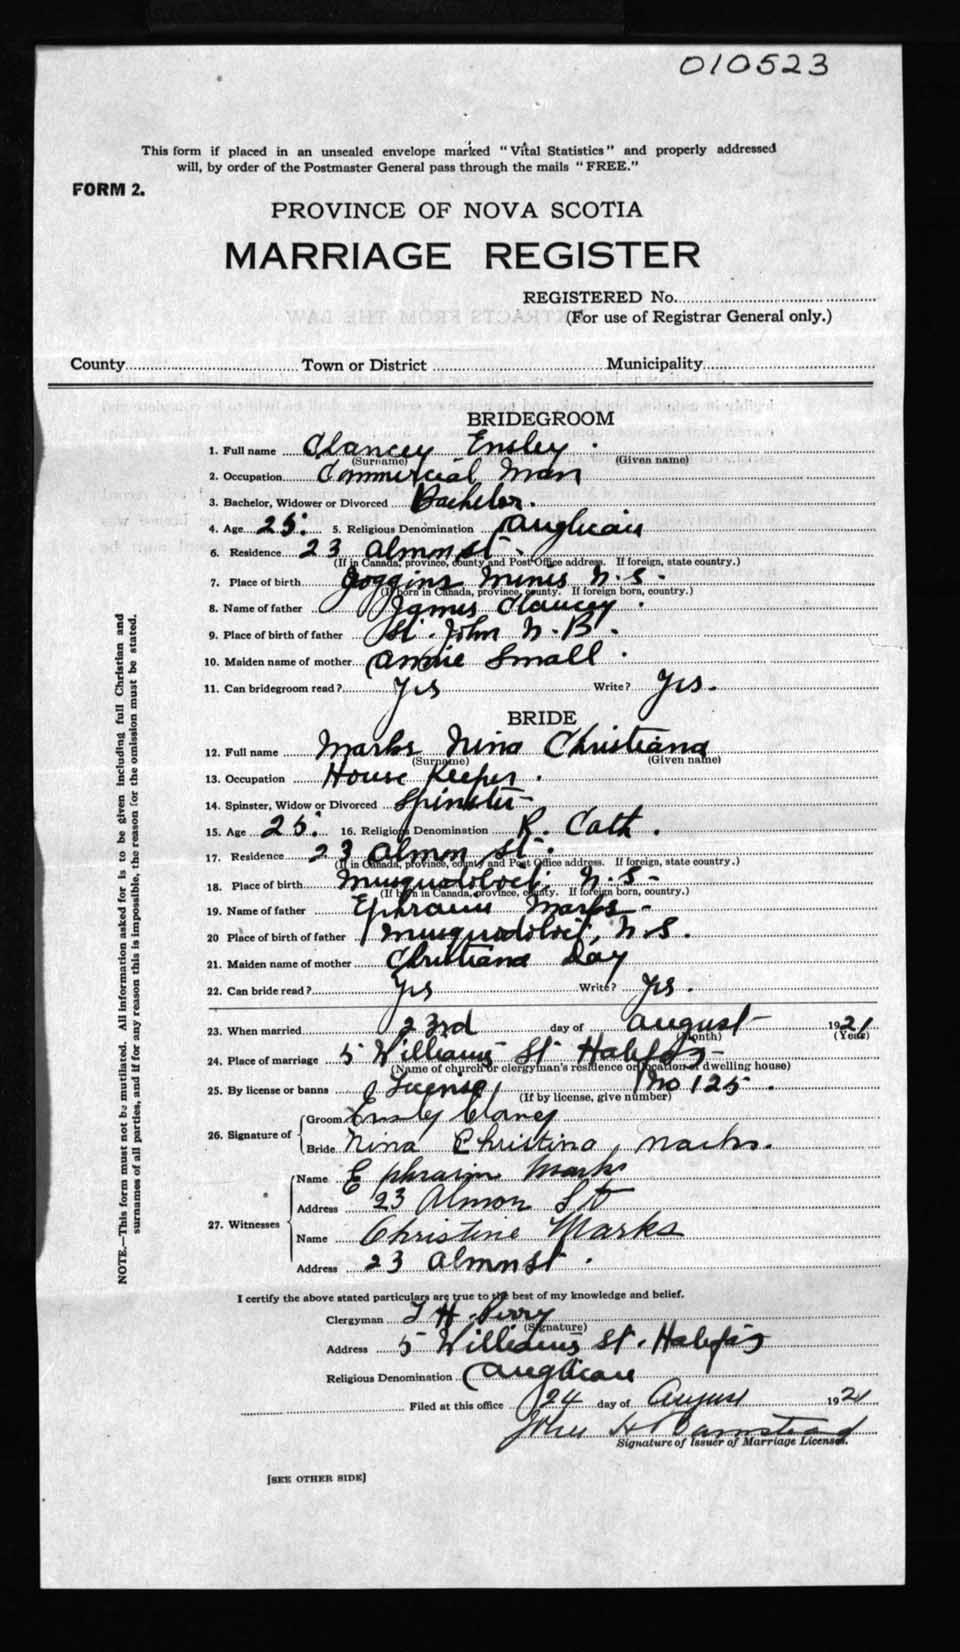 010523
This form if placed in an unsealed envelope marked "Vital Statistics" and properly addressed
will, by order of the Postmaster General pass through the mails "FREE."
FORM 2.
PROVINCE OF NOVA SCOTIA
MARRIAGE REGISTER
REGISTERED No.
(For use of Registrar General only.)
County Town or District Municipality
BRIDEGROOM
1. Full name Clancey Ensley.
(Surname) (Given name)
2. Occupation Commercial Man
3. Bachelor, Widower or Divorced Bachelor.
4. Age 25. 5. Religious Denomination Anglican
6. Residence 23 Almon St.
(If in Canada, province, county and Post Office address. If foreign, state country.)
7. Place of birth Joggins Mines N.S.
(If born in Canada, province, county. If foreign born, country.)
8. Name of father James Clancey.
9. Place of birth of father St. John N.B.
10. Maiden name of mother Annie Small.
11. Can bridegroom read? Yes Write? Yes.
BRIDE
12. Full name Marks Nina Christiana
(Surname) (Given name)
13. Occupation House Keeper.
14. Spinster, Widow or Divorced Spinster
15. Age 25. 16. Religious Denomination R. Cath.
17. Residence 23 Almon St.
(If in Canada, province, county and Post Office address. If foreign, state country.)
18. Place of birth Musquodoboit. N.S.
(If born in Canada, province, county. If foreign born, country.)
19. Name of father Ephraim Marks
20 Place of birth of father Musquodoboit, N.S.
21. Maiden name of mother Christiana Day
22. Can bride read? Yes Write? Yes.
23. When married 23rd day of August 1921
(Month) (Year)
24. Place of marriage 5 Williams St Halifax
(Name of church or clergyman's residence or location of dwelling house)
25. By license or banns License, No 125.
(If by license, give number)
26. Signature of
Groom Ensley Clancy
Bride Nina Christina, Marks.
27. Witnesses
Name Ephraim Marks
Address 23 Almon St
Name Christine Marks
Address 23 Almon St.
I certify the above stated particulars are true to the best of my knowledge and belief.
Clergyman T H Perry
(Signature)
Address 5 Williams St. Halifax
Religious Denomination Anglican
Filed at this office 24 day of August 1921
John H Barnstead
Signature of Issuer of Marriage Licenses.
[SEE OTHER SIDE]
NOTE.—This form must not be mutilated. All information asked for is to be given including full Christian and
surnames of all parties, and if for any reason this is impossible, the reason for the omission must be stated.